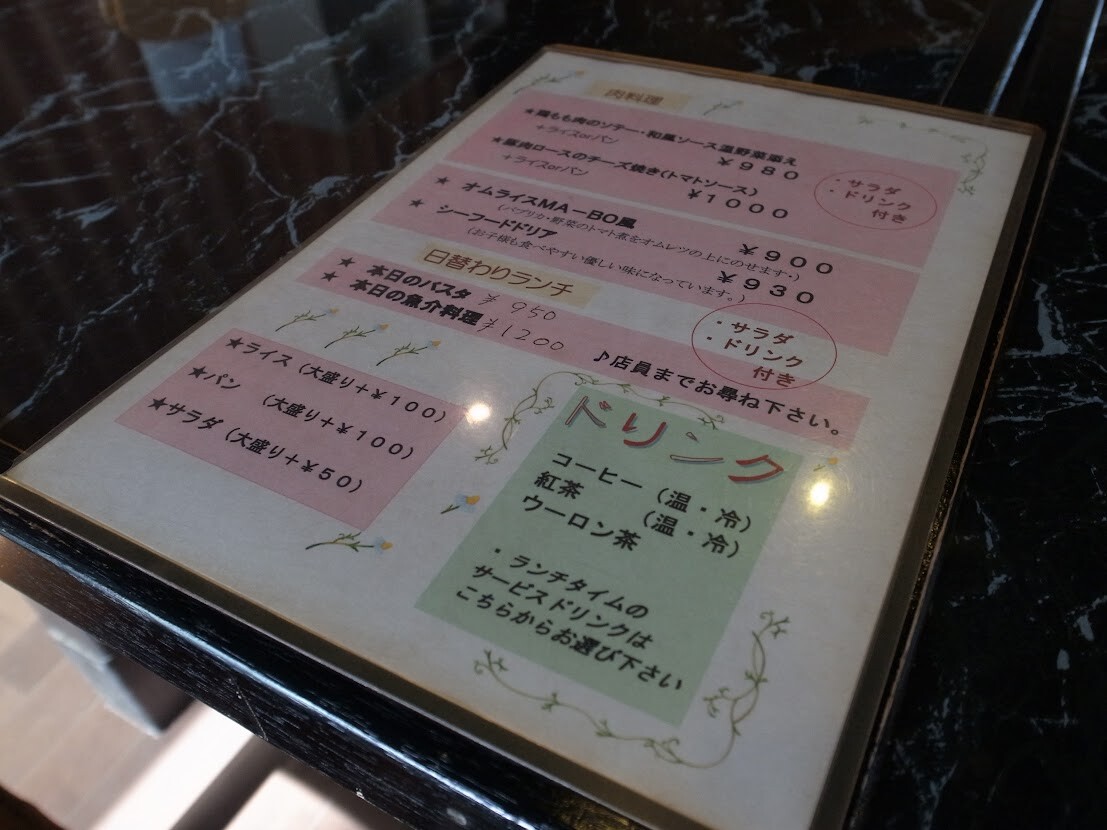 肉料理
★鶏もも肉のソテー・和風ソース温野菜添え
+ライスorパン ￥980
★豚肉ロースのチーズ焼き(トマトソース)
+ライスorパン ￥1000
・サラダ
・ドリンク
付き
★ オムライスMA－BO風 ￥900
(パプリカ・野菜のトマト煮をオムレツの上にのせます・)
★ シーフードドリア ￥930
(お子様も食べやすい優しい味になっています。)
日替わりランチ
★ 本日のパスタ ￥950
★ 本日の魚介料理 ￥1200
・サラダ
・ドリンク
付き
♪店員までお尋ね下さい。
★ライス (大盛り+￥100)
★パン (大盛り+￥100)
★サラダ (大盛り+￥50)
ドリンク
コーヒー (温・冷)
紅茶 (温・冷)
ウーロン茶
・ランチタイムの
サービスドリンクは
こちらからお選び下さい